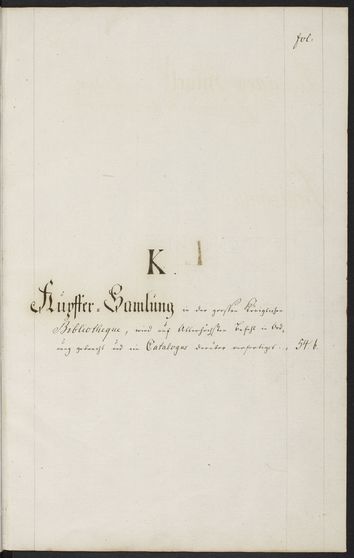 fol.
K.
Kupffer-Samlung in der grossen Königlichen
Bibliotheque, wird auf Allerhöchsten Befehl in Ord,
nung gebracht und ein Catalogus darüber verfertiget .. 54 b.